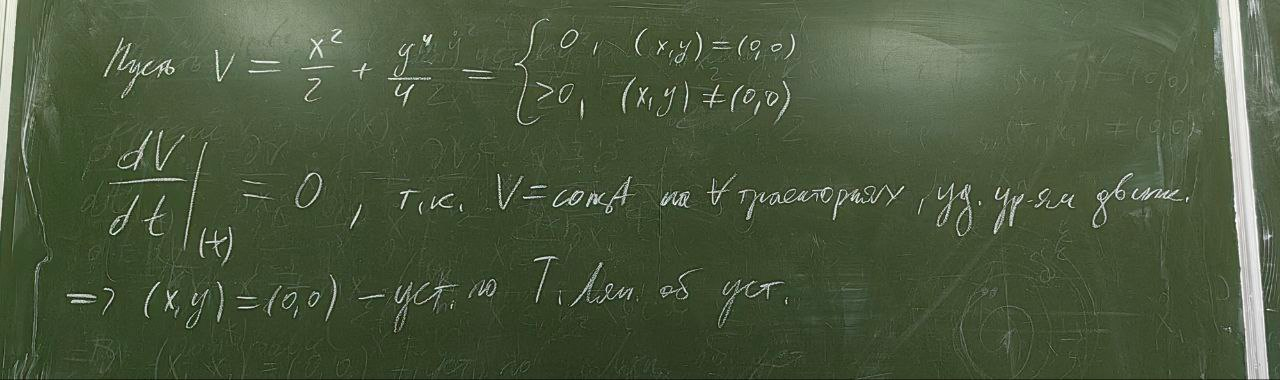 Пусть V = x²/2 + y⁴/4 = { 0, (x,y) = (0,0)
≥0, (x,y) ≠ (0,0)
dV/dt |(*) = 0, т.к. V = const на ∀ траекториях, уд. ур-ям движ.
=> (x,y) = (0,0) – уст. по Т. Ляп. об уст.